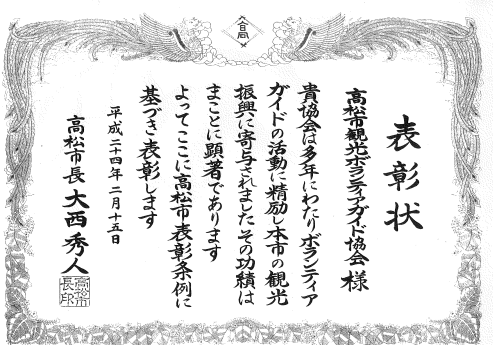 表彰状
高松市観光ボランティアガイド協会様
貴協会は多年にわたりボランティア
ガイドの活動に精励し本市の観光
振興に寄与されましたその功績は
まことに顕著であります
よってここに高松市表彰条例に
基づき表彰します
平成二十四年二月十五日
高松市長 大西秀人
高松市
長印